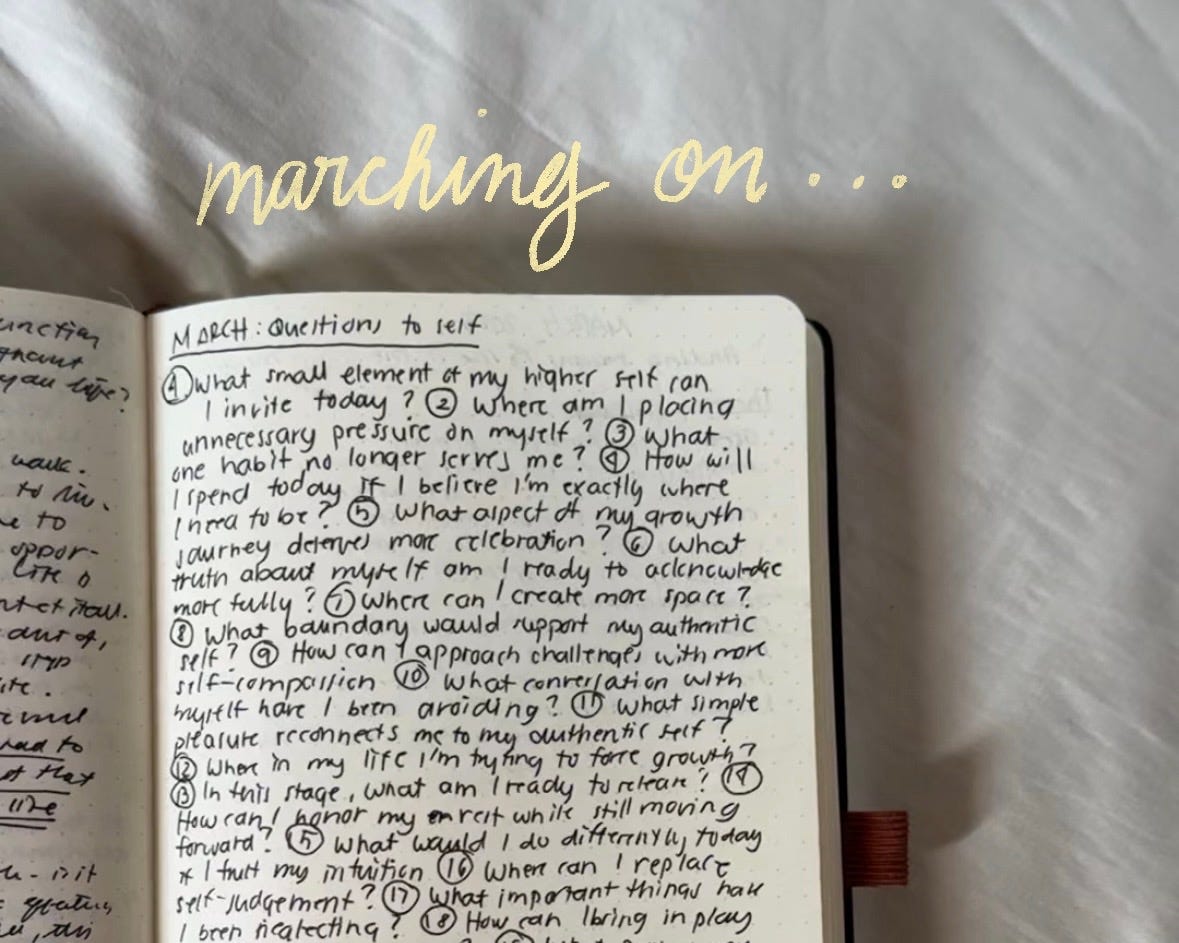 marching on...
unction
you life?
walk.
to
to
oppor-
like a
out of,
stop
had to
of that
like
is it
MARCH: Questions to self
① What small element of my higher self can
I invite today? ② Where am I placing
unnecessary pressure on myself? ③ What
one habit no longer serves me? ④ How will
I spend today if I believe I'm exactly where
I need to be? ⑤ What aspect of my growth
journey deserves more celebration? ⑥ What
truth about myself am I ready to acknowledge
more fully? ⑦ Where can I create more space?
⑧ What boundary would support my authentic
self? ⑨ How can I approach challenges with more
self-compassion ⑩ What conversation with
myself have I been avoiding? ⑪ What simple
pleasure reconnects me to my authentic self?
⑫ Where in my life I'm trying to force growth?
⑬ In this stage, what am I ready to release? ⑭
How can I honor my rest while still moving
forward? ⑮ What would I do differently today
if I trust my intuition ⑯ Where can I replace
self-judgement? ⑰ What important things have
I been neglecting? ⑱ How can I bring in play